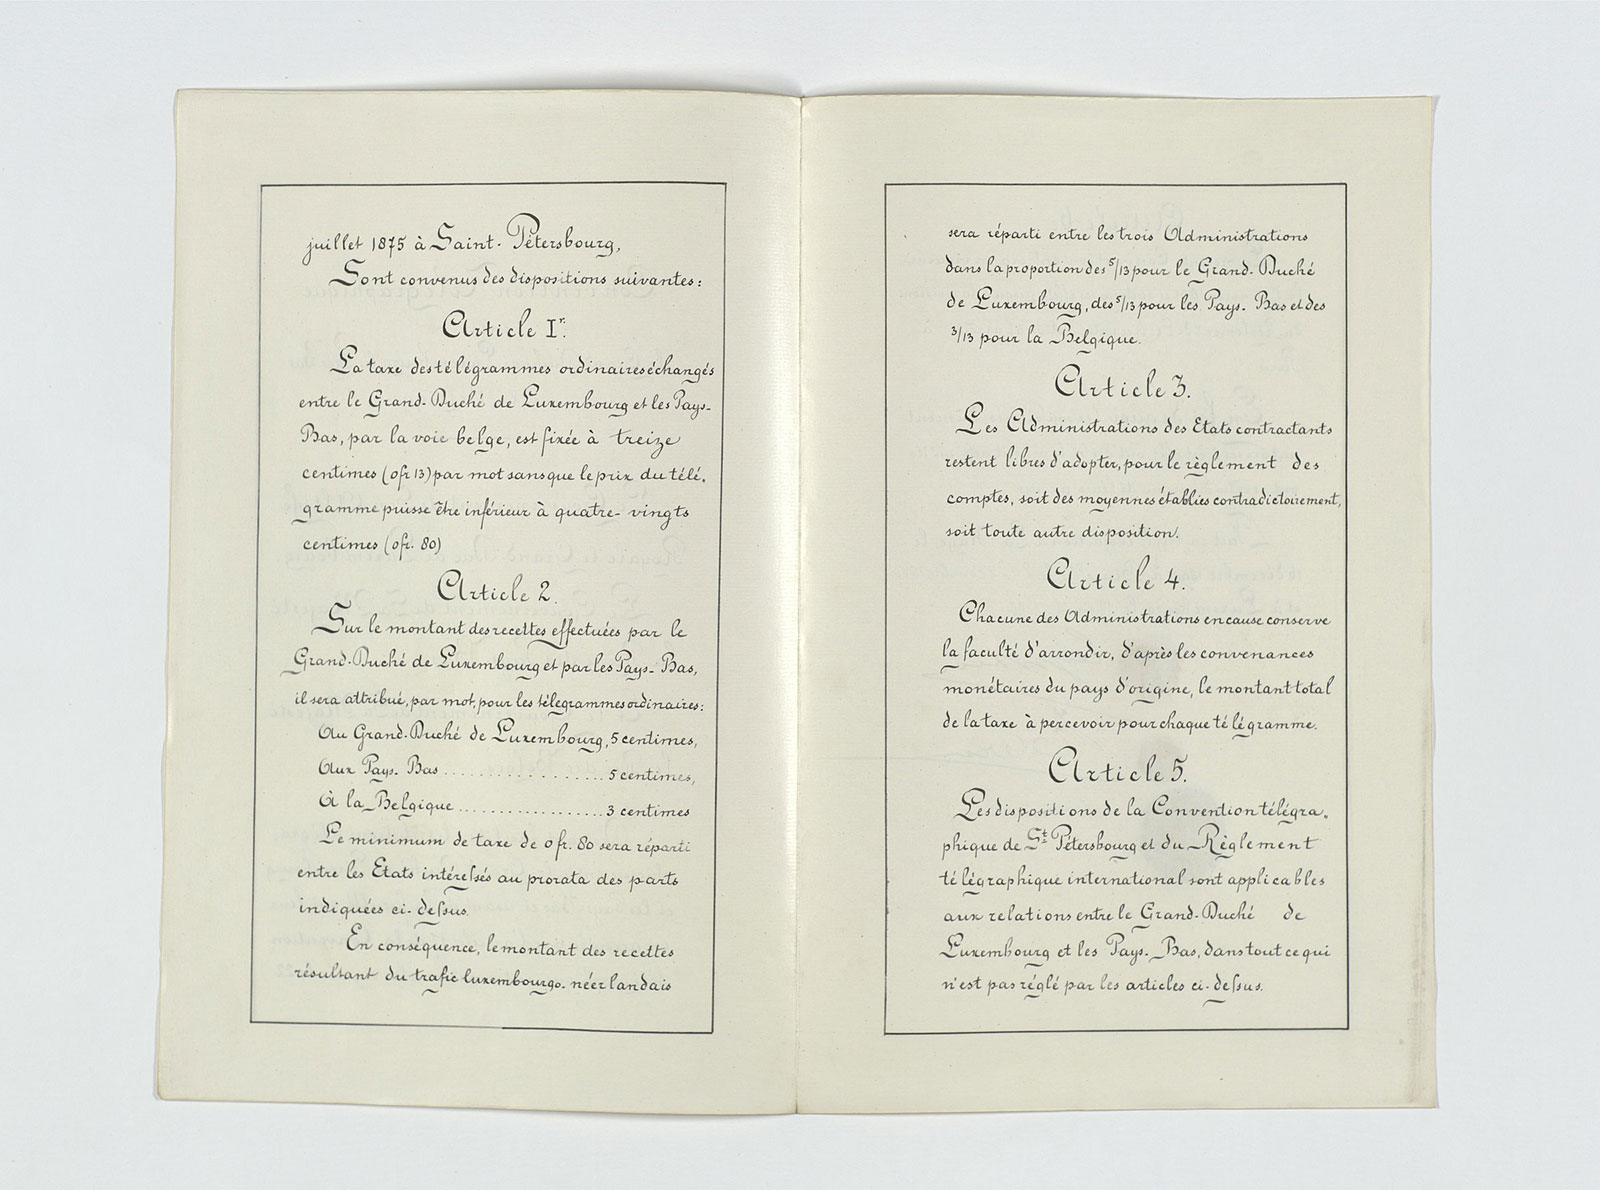 juillet 1875 à Saint-Pétersbourg,
Sont convenus des dispositions suivantes:
Article Ir.
La taxe des télégrammes ordinaires échangés
entre le Grand-Duché de Luxembourg et les Pays-
Bas, par la voie belge, est fixée à treize
centimes (0fr 13) par mot sans que le prix du télé-
gramme puisse être inférieur à quatre-vingts
centimes (0fr. 80)
Article 2.
Sur le montant des recettes effectuées par le
Grand-Duché de Luxembourg et par les Pays-Bas,
il sera attribué, par mot, pour les télegrammes ordinaires:
Au Grand-Duché de Luxembourg, 5 centimes,
Aux Pays-Bas .................. 5 centimes,
À la Belgique ................ 3 centimes
Le minimum de taxe de 0 fr. 80 sera réparti
entre les Etats intéreſsés au prorata des parts
indiquées ci-deſsus.
En conséquence, le montant des recettes
résultant du trafic luxembourgo-néerlandais
sera réparti entre les trois Administrations
dans la proportion des 5/13 pour le Grand-Duché
de Luxembourg, des 5/13 pour les Pays-Bas et des
3/13 pour la Belgique.
Article 3.
Les Administrations des Etats contractants
restent libres d'adopter, pour le règlement des
comptes, soit des moyennes établies contradictoirement,
soit toute autre disposition.
Article 4.
Chacune des Administrations en cause conserve
la faculté d'arrondir, d'après les convenances
monétaires du pays d'origine, le montant total
de la taxe à percevoir pour chaque télégramme.
Article 5.
Les dispositions de la Convention télégra-
phique de St Pétersbourg et du Règlement
télégraphique international sont applicables
aux relations entre le Grand-Duché de
Luxembourg et les Pays-Bas, dans tout ce qui
n'est pas réglé par les articles ci-deſsus.